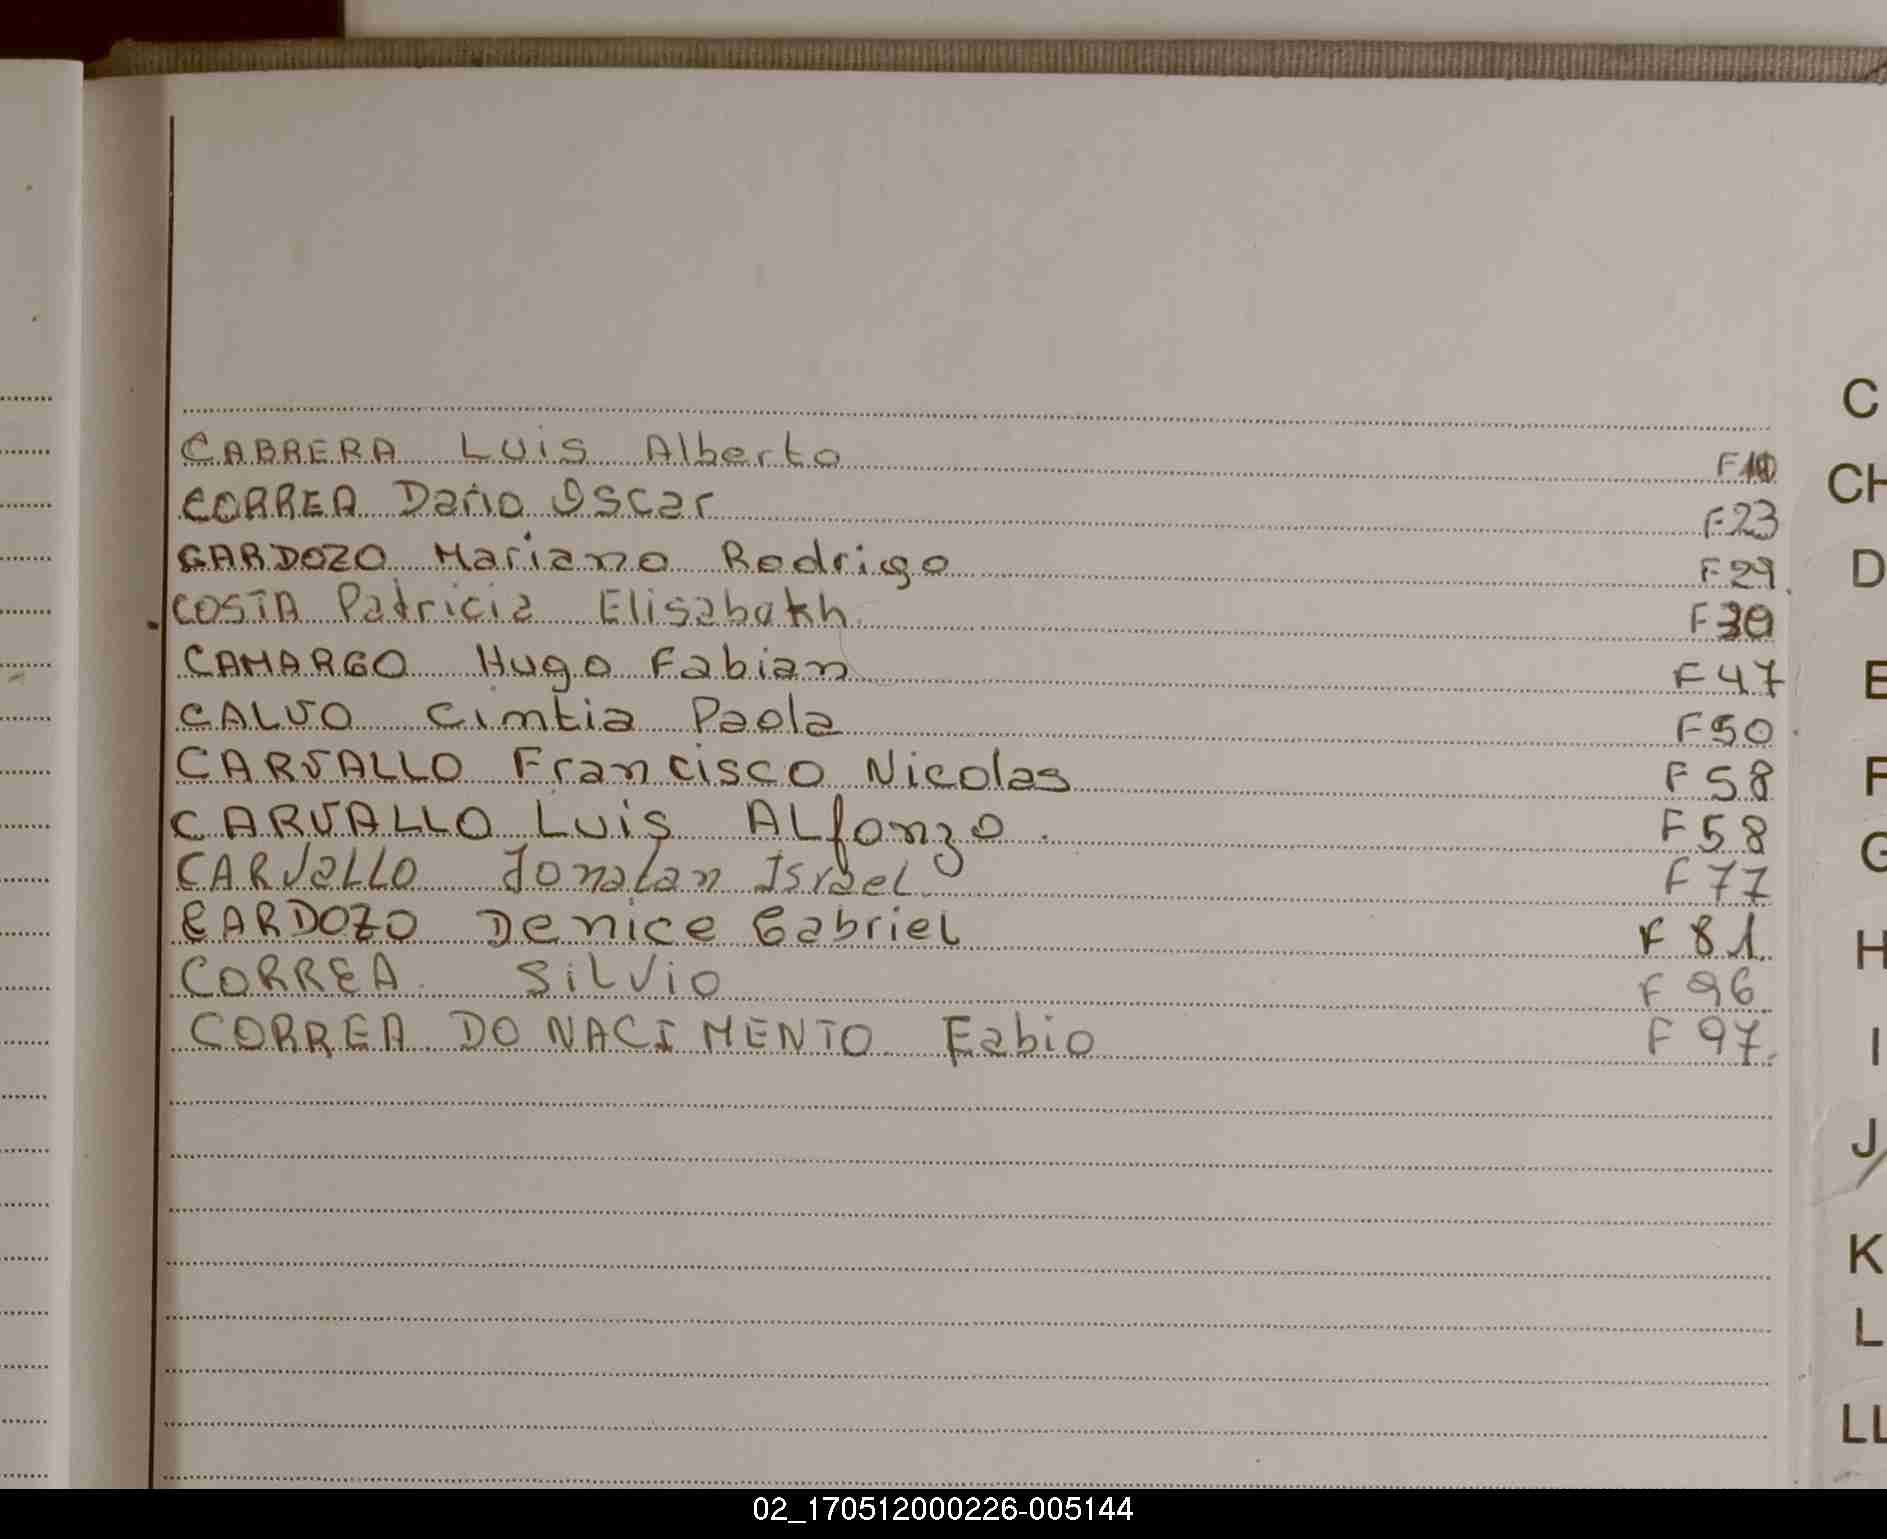 CABRERA Luis Alberto F10
CORREA Dario Oscar F23
CARDOZO Mariano Rodrigo F29
COSTA Patricia Elisabakh F30
CAMARGO Hugo Fabian F47
CALVO Cintia Paola F50
CARVALLO Francisco Nicolas F58
CARVALLO Luis ALfonzo F58
CARVaLLO Jonatan Israel F77
CARDOZO Denice Gabriel F81
CORREA SiLVio F96
CORREA DO NACIMENTO Fabio F97
C
CH
D
E
F
G
H
I
J
K
L
LL
02_170512000226-005144